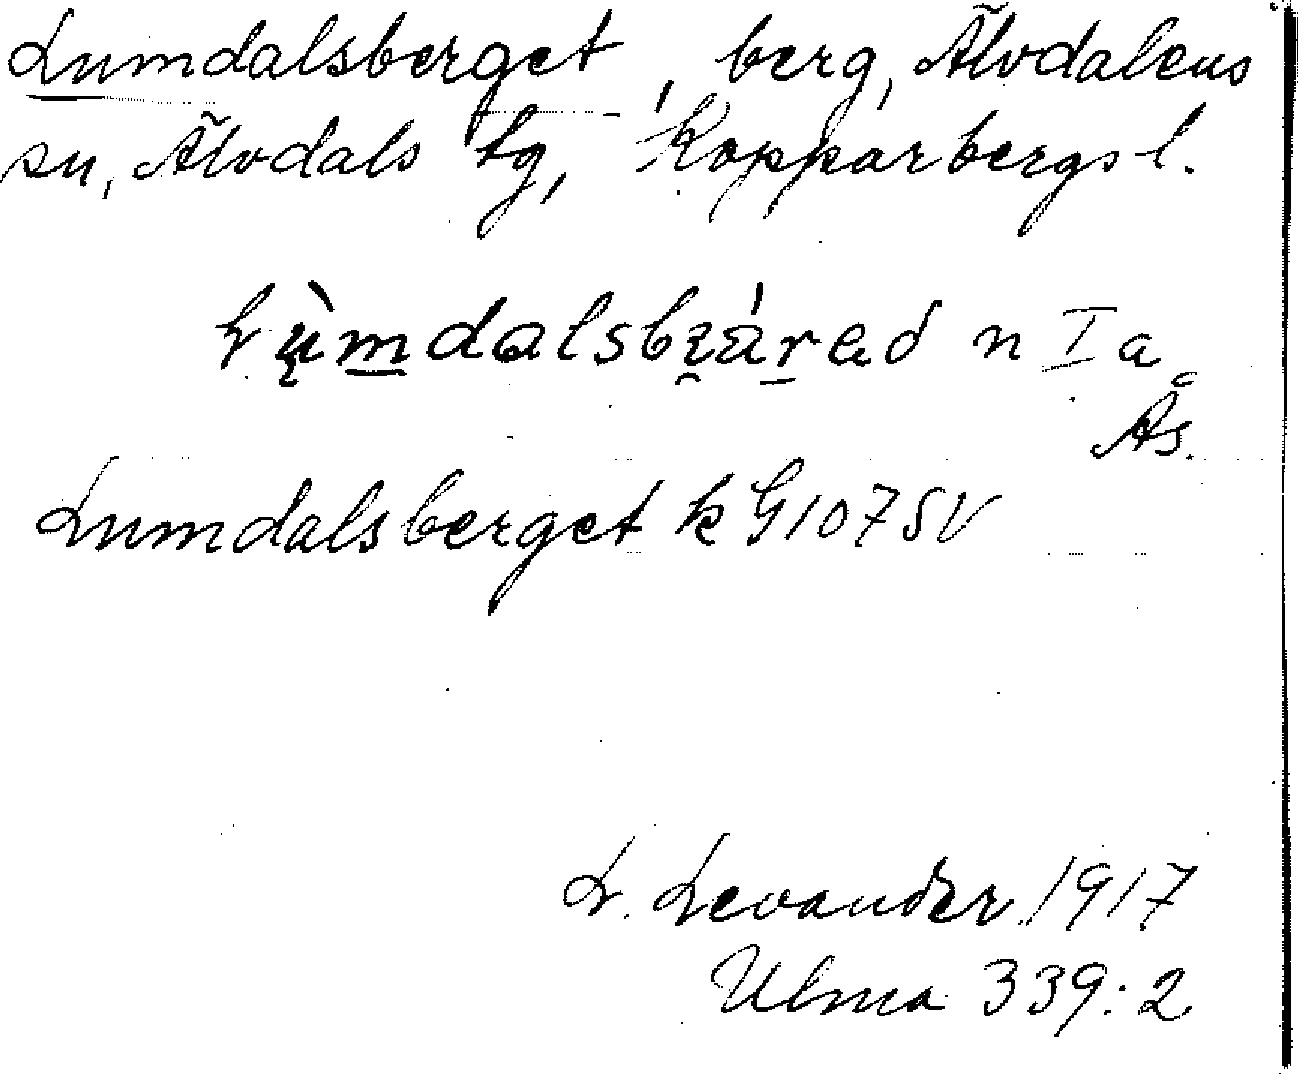 Lumdalsberget, berg, Älvdalens
sn, Älvdals tg, Kopparbergs l.
Lų̀mdalsbɪ̯áred n I a
Ås.
Lumdalsberget k G107SV
L. Levander 1917
Ulma 339:2